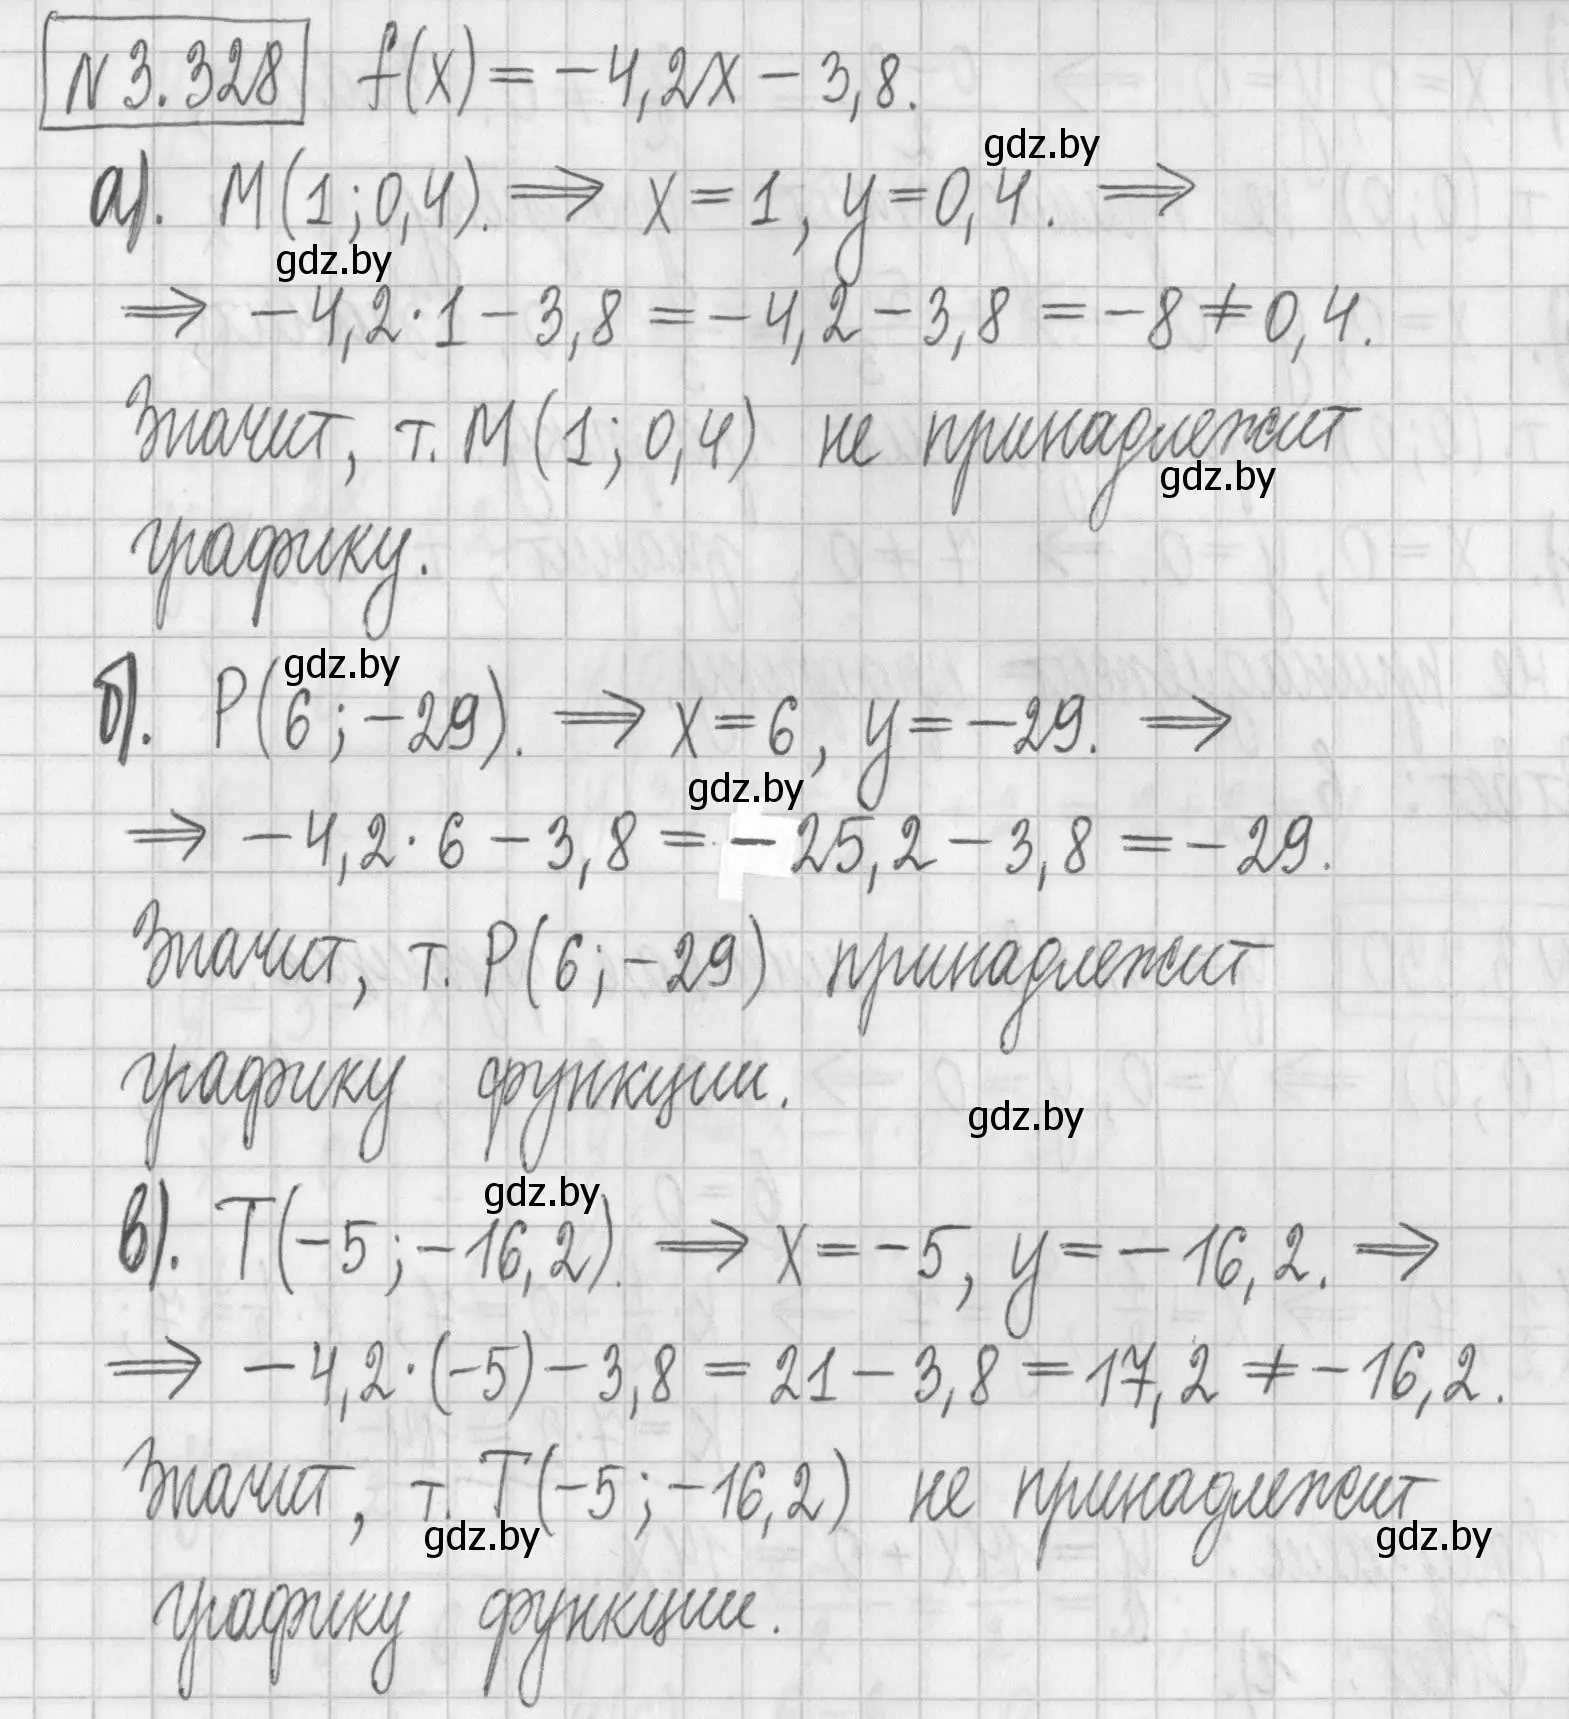 N 3.328 f(x) = -4,2x - 3,8.
gdz.by
а). M(1; 0,4). ⟹ x = 1, y = 0,4. ⟹
gdz.by
⟹ -4,2 · 1 - 3,8 = -4,2 - 3,8 = -8 ≠ 0,4.
Значит, т. M(1; 0,4) не принадлежит
gdz.by
графику.
gdz.by
б). P(6; -29). ⟹ x = 6, y = -29. ⟹
gdz.by
⟹ -4,2 · 6 - 3,8 = -25,2 - 3,8 = -29.
Значит, т. P(6; -29) принадлежит
графику функции.
gdz.by
gdz.by
в). T(-5; -16,2). ⟹ x = -5, y = -16,2. ⟹
⟹ -4,2 · (-5) - 3,8 = 21 - 3,8 = 17,2 ≠ -16,2.
Значит, т. T(-5; -16,2) не принадлежит
gdz.by gdz.by
графику функции.